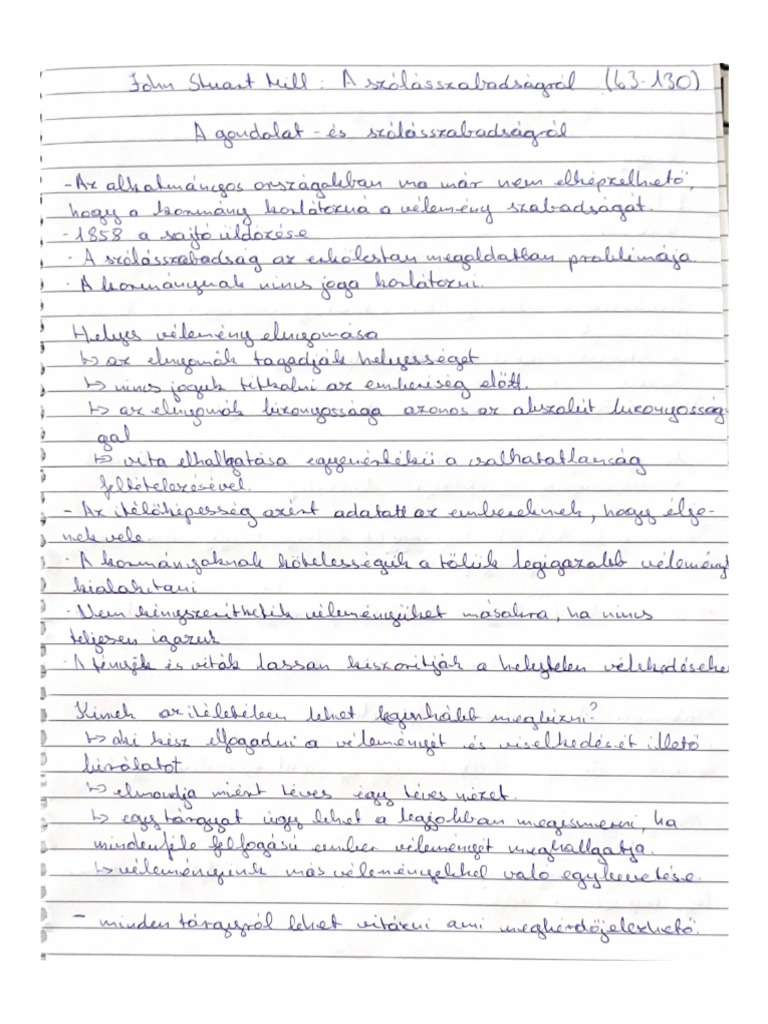 John Stuart Mill: A szólásszabadságról (63-130)
A gondolat - és szólásszabadságról
- Az alkotmányos országokban ma már nem elképzelhető,
hogy a kormány korlátozná a vélemény szabadságát.
- 1858 a sajtó üldözése
- A szólásszabadság az erkölcstan megoldatlan problémája
- A kormánynak nincs joga korlátozni.
Helyes vélemény elnyomása
↳ az elnyomók tagadják helyességét
↳ nincs joguk titkolni az emberiség előtt.
↳ az elnyomók bizonyossága azonos az abszolút bizonyosság-
gal
↳ vita elhallgatása egyenértékű a csalhatatlanság
feltételezésével.
- Az ítélőképesség azért adatott az embereknek, hogy élje-
nek vele.
- A kormányoknak kötelességük a tőlük legigazabb vélemény
kialakítani
- Nem kényszeríthetik véleményüket másokra, ha nincs
teljesen igazuk
- A tények és viták lassan kiszorítják a helytelen vélekedéseke
Kinek az ítéletében lehet leginkább megbízni?
↳ aki kész elfogadni a véleményét és viselkedését illető
bírálatot
↳ elmondja miért téves egy téves nézet.
↳ egy tárgyat úgy lehet a legjobban megismerni, ha
mindenféle felfogású ember véleményét meghallgatja.
↳ véleményünk más véleményekkel való egybevetése.
- minden tárgyról lehet vitázni ami megkérdőjelezhető.